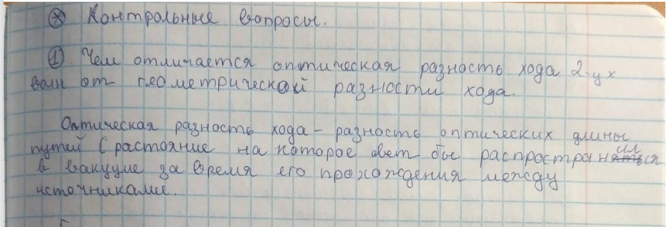 ⊛ Контрольные вопросы.
① Чем отличается оптическая разность хода 2-ух
волн от геометрической разности хода.
Оптическая разность хода – разность оптических длины
путей (растояние на которое свет бы распространился
в вакууме за время его прохождения между
источниками.